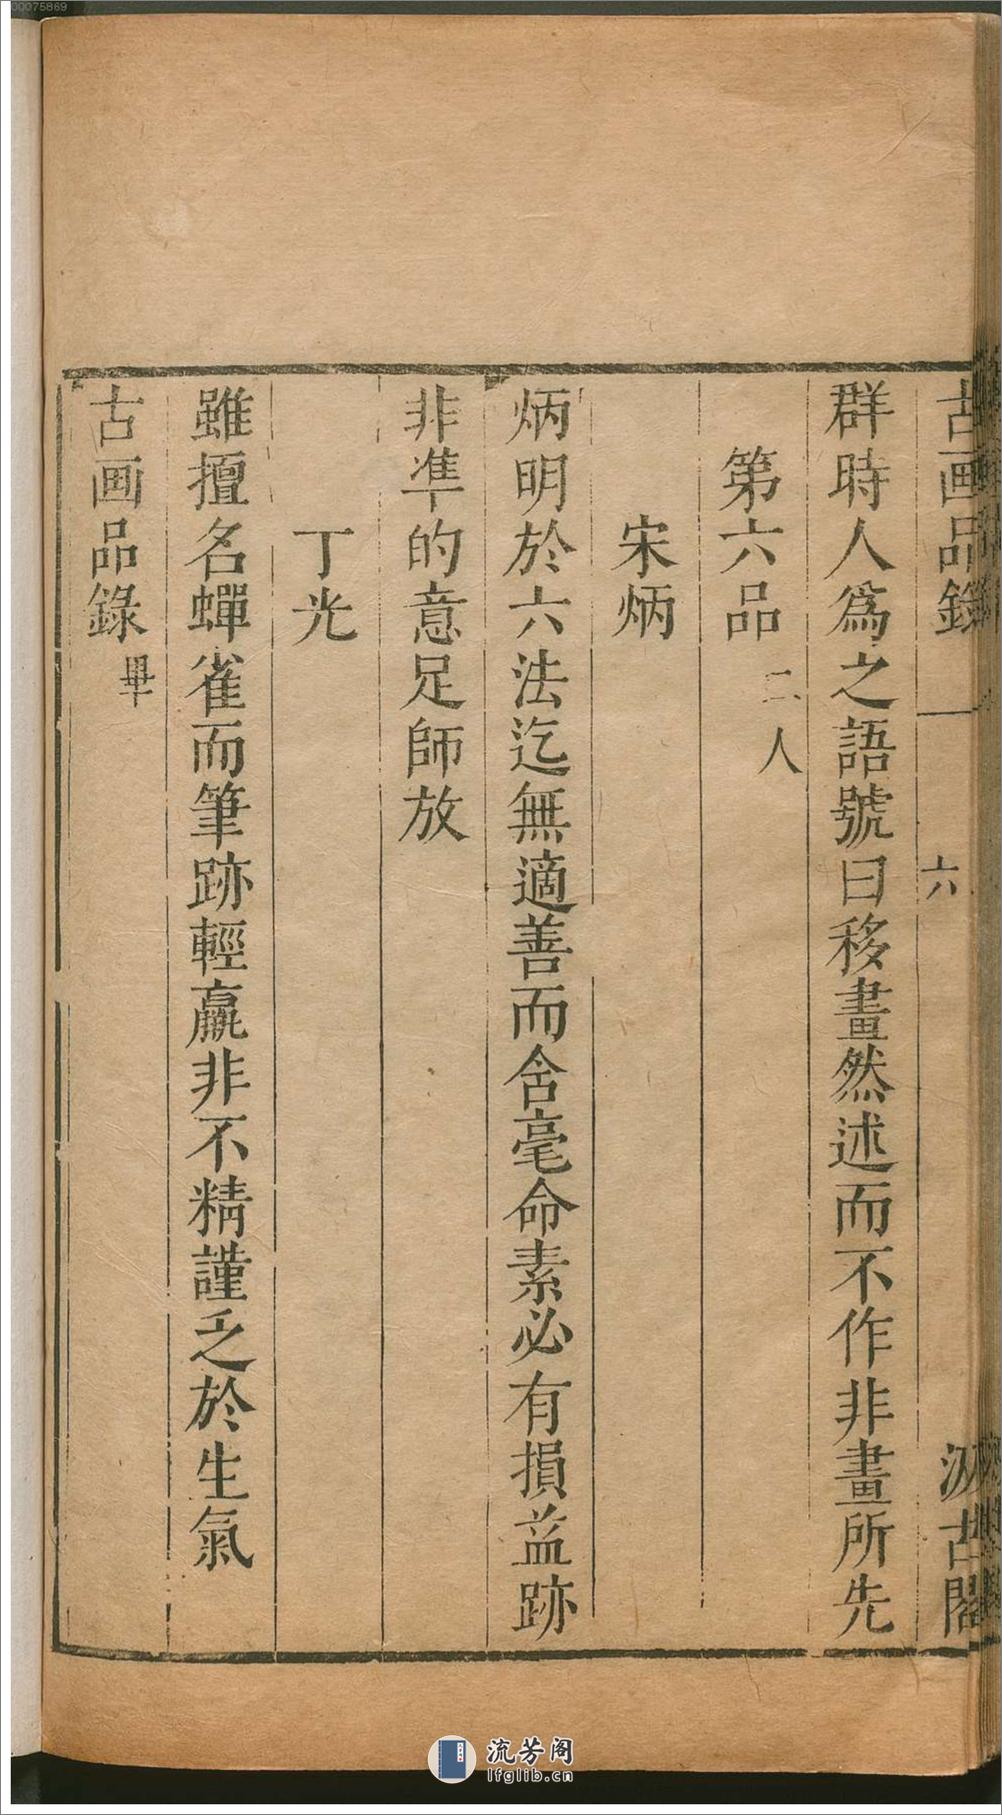 古画品錄
六
汲古閣
群時人爲之語號曰移畫然述而不作非畫所先
第六品二人
宋炳
炳明於六法迄無適善而含毫命素必有損益跡
非準的意足師放
丁光
雖擅名蟬雀而筆跡輕羸非不精謹乏於生氣
古画品錄畢
00075869
流芳阁
lfglib.cn